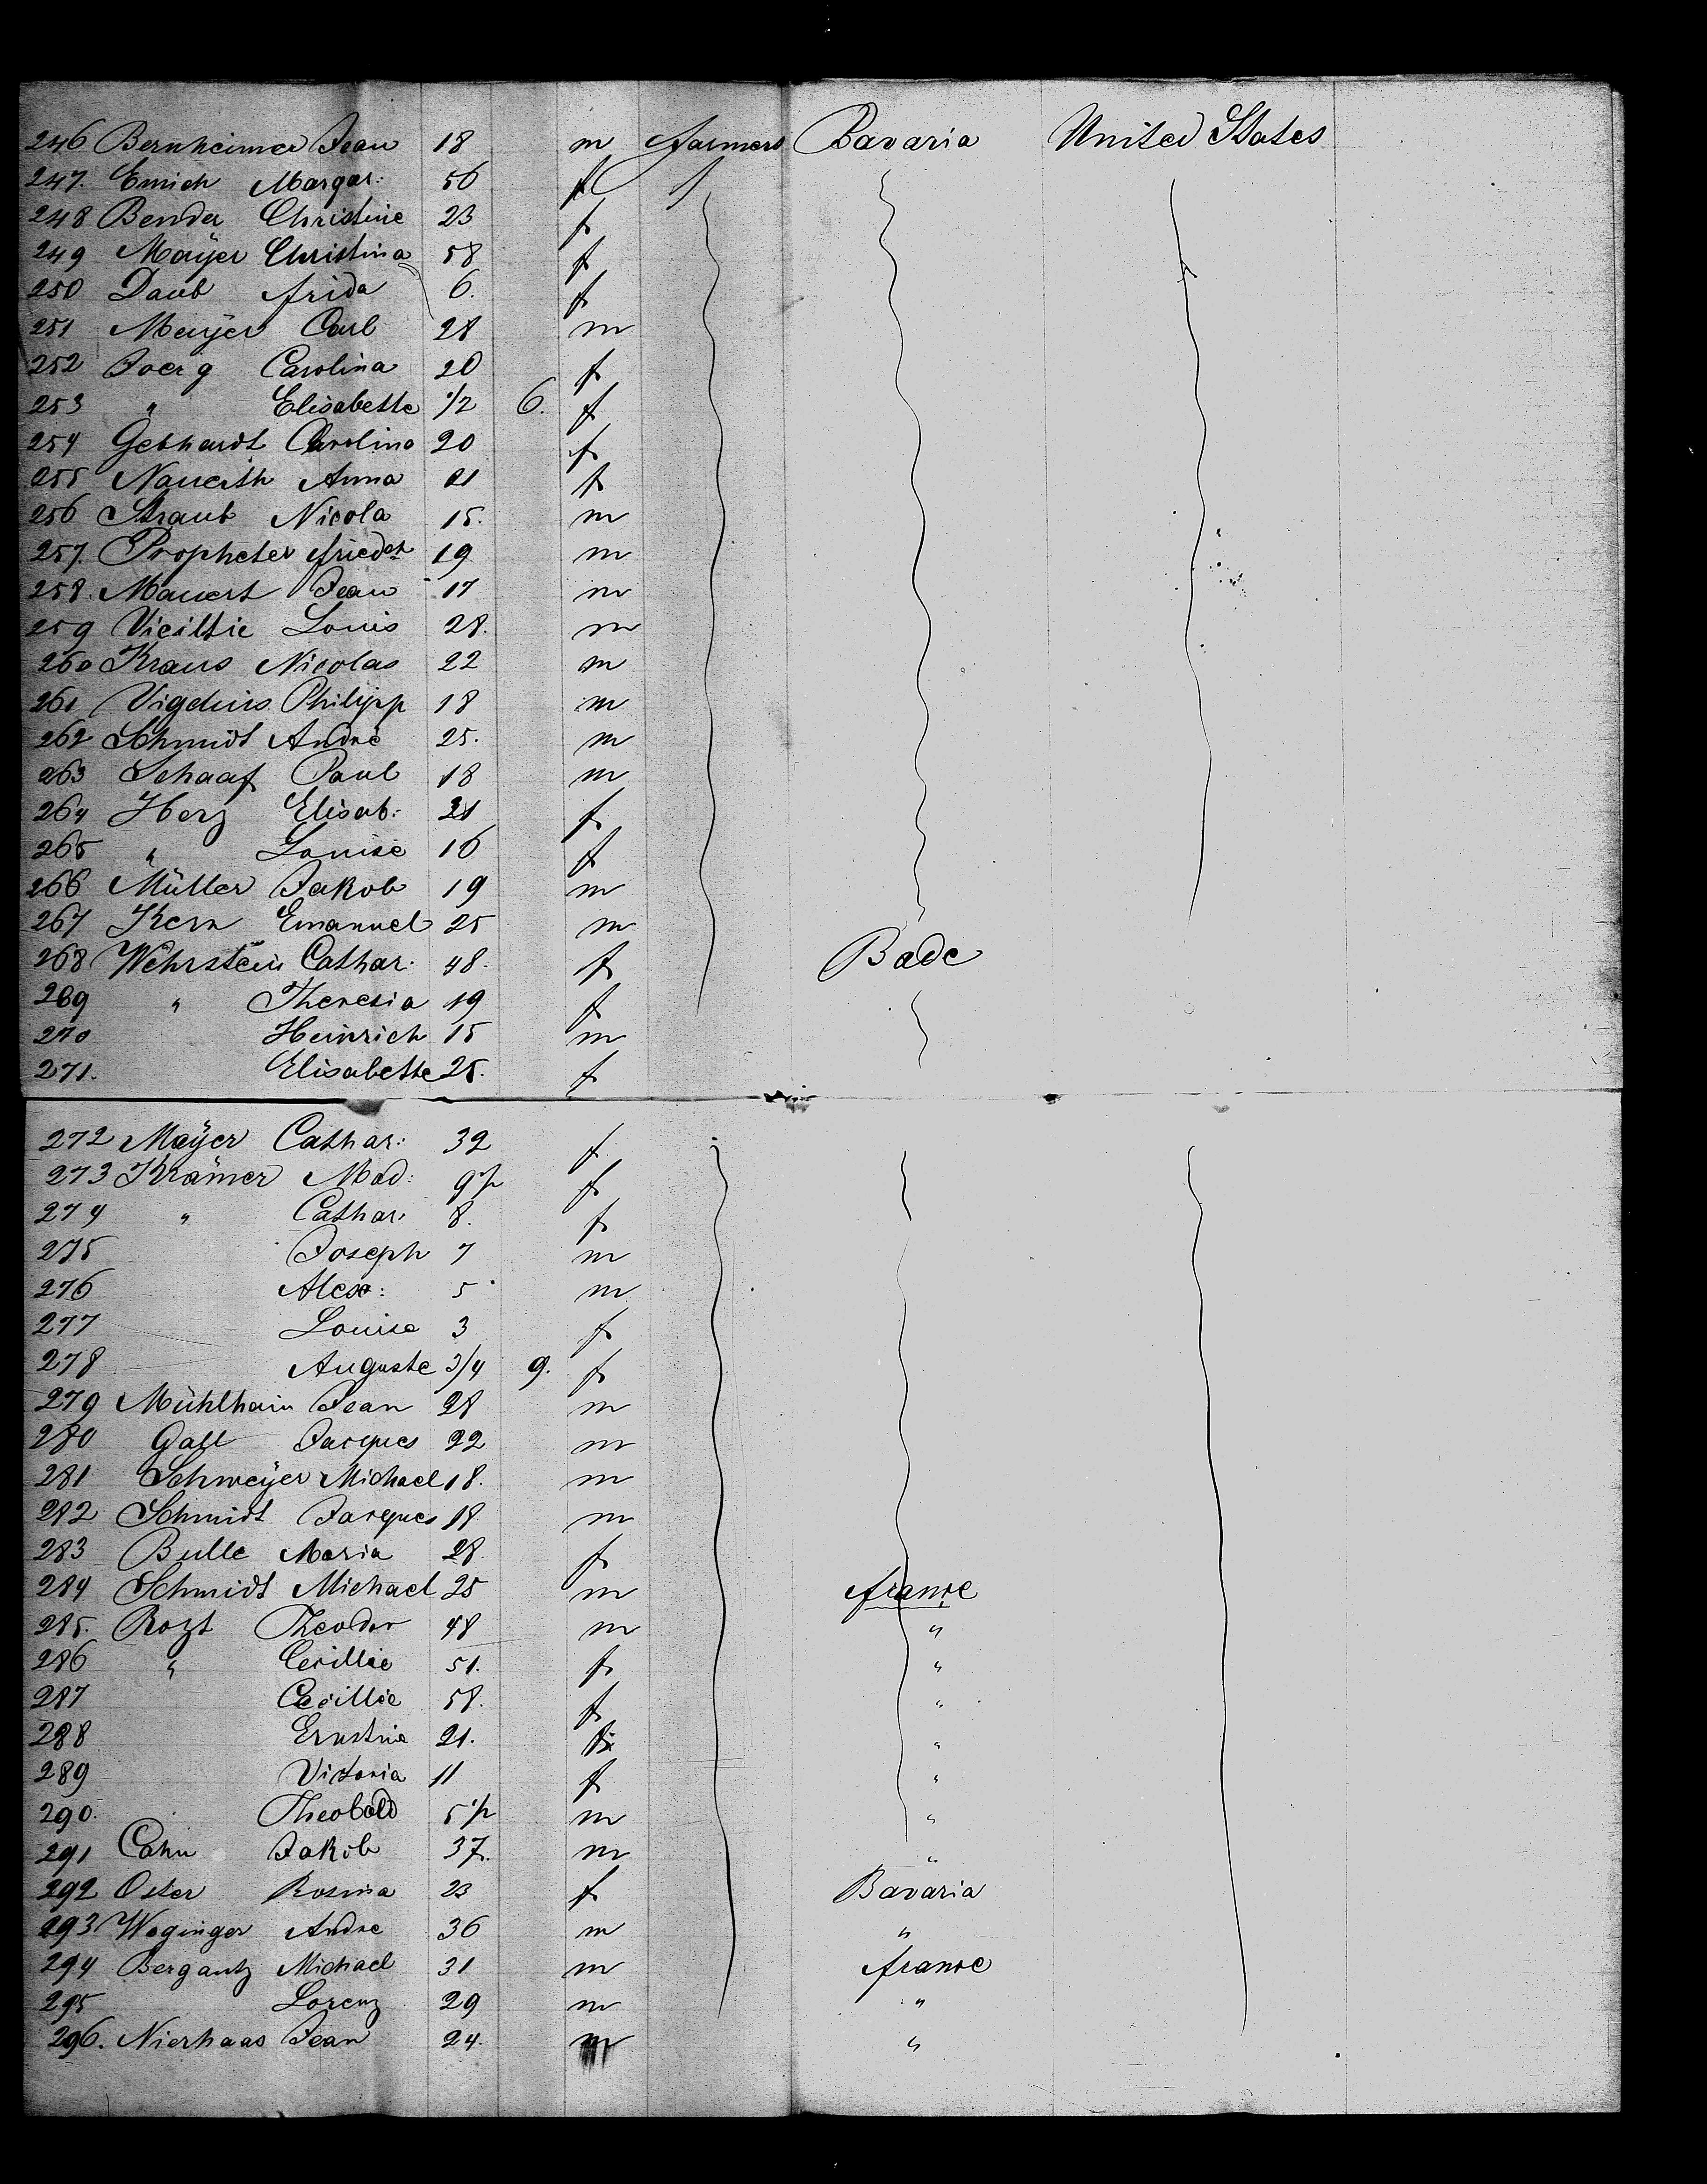 246 Bernheimer Jean 18 m farmers Bavaria United States
247. Emich Margar: 56 f
248 Bender Christine 23 f
249 Mayer Christina 58 f
250 Daub frida 6. f
251 Meyer Carl 28 m
252 Joerg Carolina 20 f
253 " Elisabette 1/2 6. f
254 Gebhardt Carolina 20 f
255 Nauerth Anna 21 f
256 Straub Nicola 15. m
257. Propheter friedch 19 m
258. Mauert Jean 17 m
259 Louis 28. m
260 Kraus Nicolas 22 m
261 Philipp 18 m
262 Schmidt André 25. m
263 Schaaf Paul 18 m
264 Herz Elisab: 21 f
265 " Louise 16 f
266 Müller Jakob 19 m
267 Kern Emanuel 25 m
268 Wehrstein Cathar. 48. f Bade
269 " Theresia 19 f
270 Heinrich 15 m
271. Elisabette 25. f
272 Mayer Cathar: 32 f
273 Krämer Mad: 9 1/2 f
274 " Cathar. 8. f
275 Joseph 7 m
276 Alex: 5 m
277 Louise 3 f
278 Auguste 3/4 9. f
279 Mühlhain Jean 28 m
280 Gall Jacques 22 m
281 Schweyer Michael 18. m
282 Schmidt Jacques 18 m
283 Bulle Maria 28. f
284 Schmidt Michael 25 m france
285. Rozt Theodor 48 m "
286 " Cecillie 51. f "
287 Cecillie 58. f "
288 Ernstine 21. f "
289 Victoria 11 f "
290. Theobald 5 1/2 m "
291 Cahn Jakob 37. m "
292 Oster Rosina 23 f Bavaria
293 Woginger Andre 36 m "
294 Bergantz Michael 31 m france
295 Lorenz 29 m "
296. Nierhaas Jean 24. m "